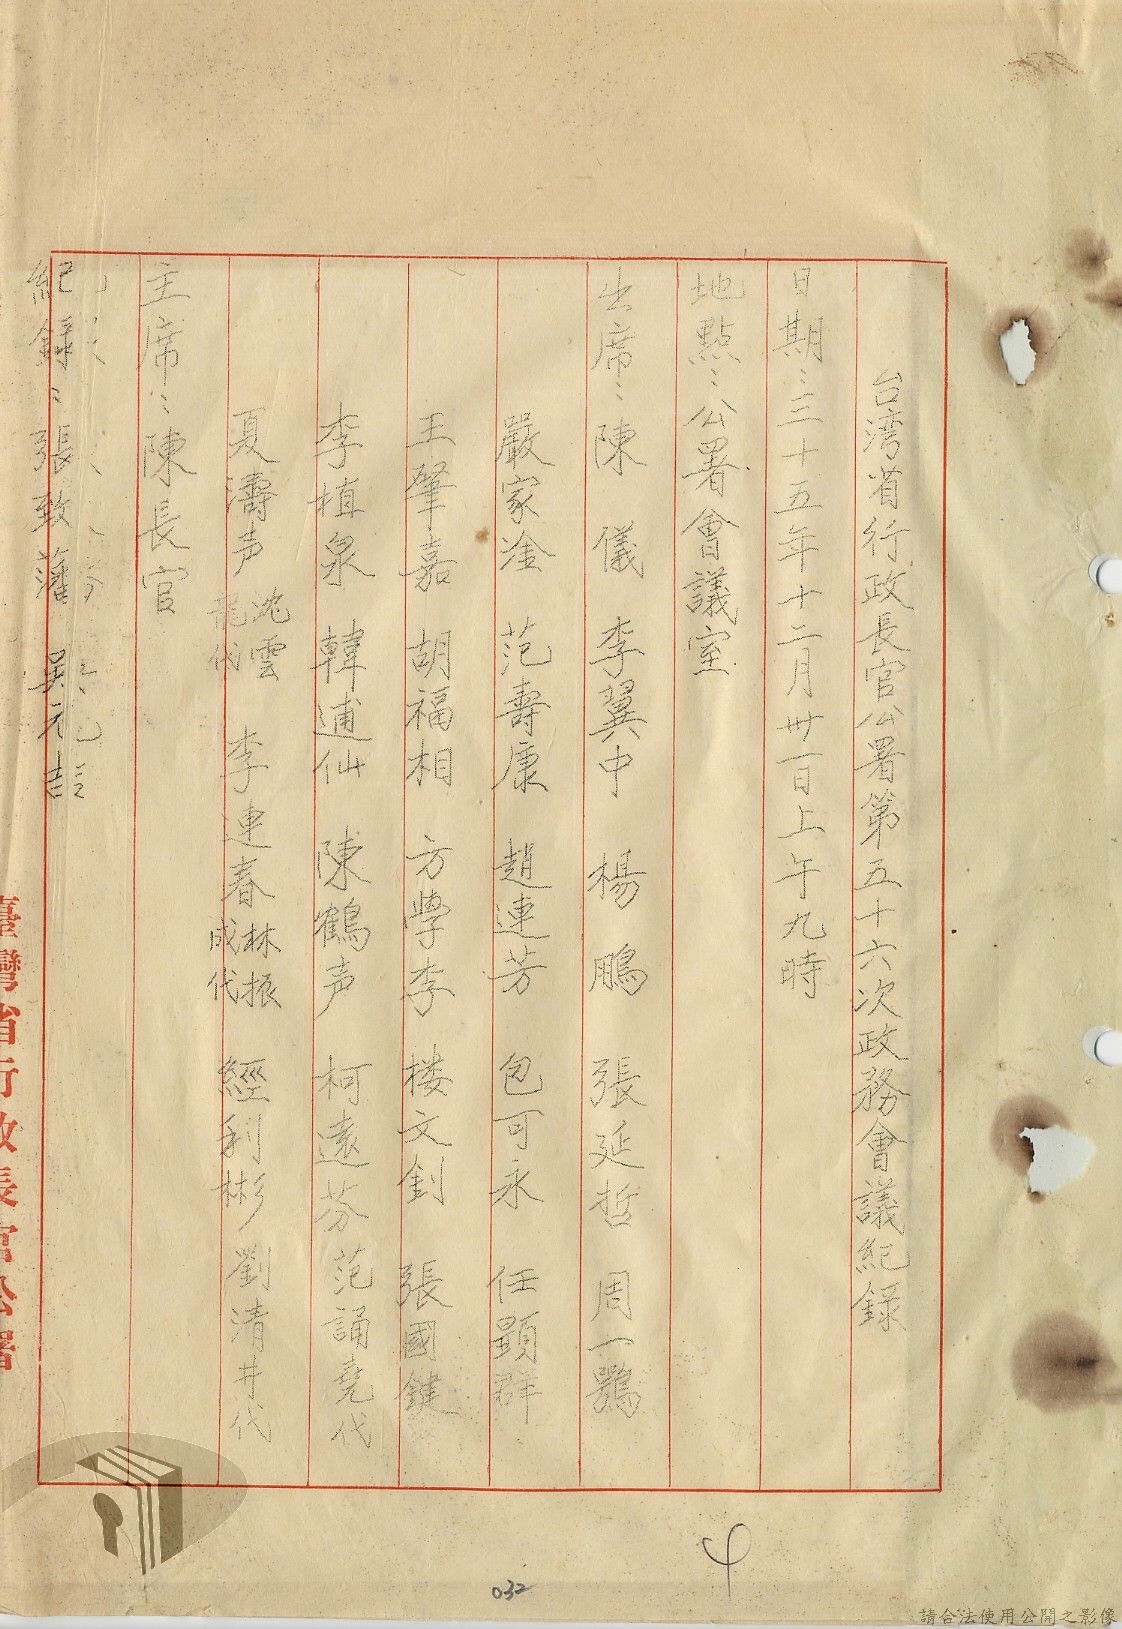 台湾省行政長官公署第五十六次政務會議紀錄
日期：三十五年十二月卅一日上午九時
地點：公署會議室
出席：陳儀 李翼中 楊鵬 張延哲 周一鶚
嚴家淦 范壽康 趙連芳 包可永 任顕群
王肇嘉 胡福相 方學李 楼文釗 張國鍵
李植泉 韓逋仙 陳鶴声 柯遠芬 范誦堯代
夏濤声 沈雲龍代 李連春 林振成代 經利彬 劉清井代
主席：陳長官
紀錄：張致藩 吳元喆
臺灣省行政長官公署
032
請合法使用公開之影像